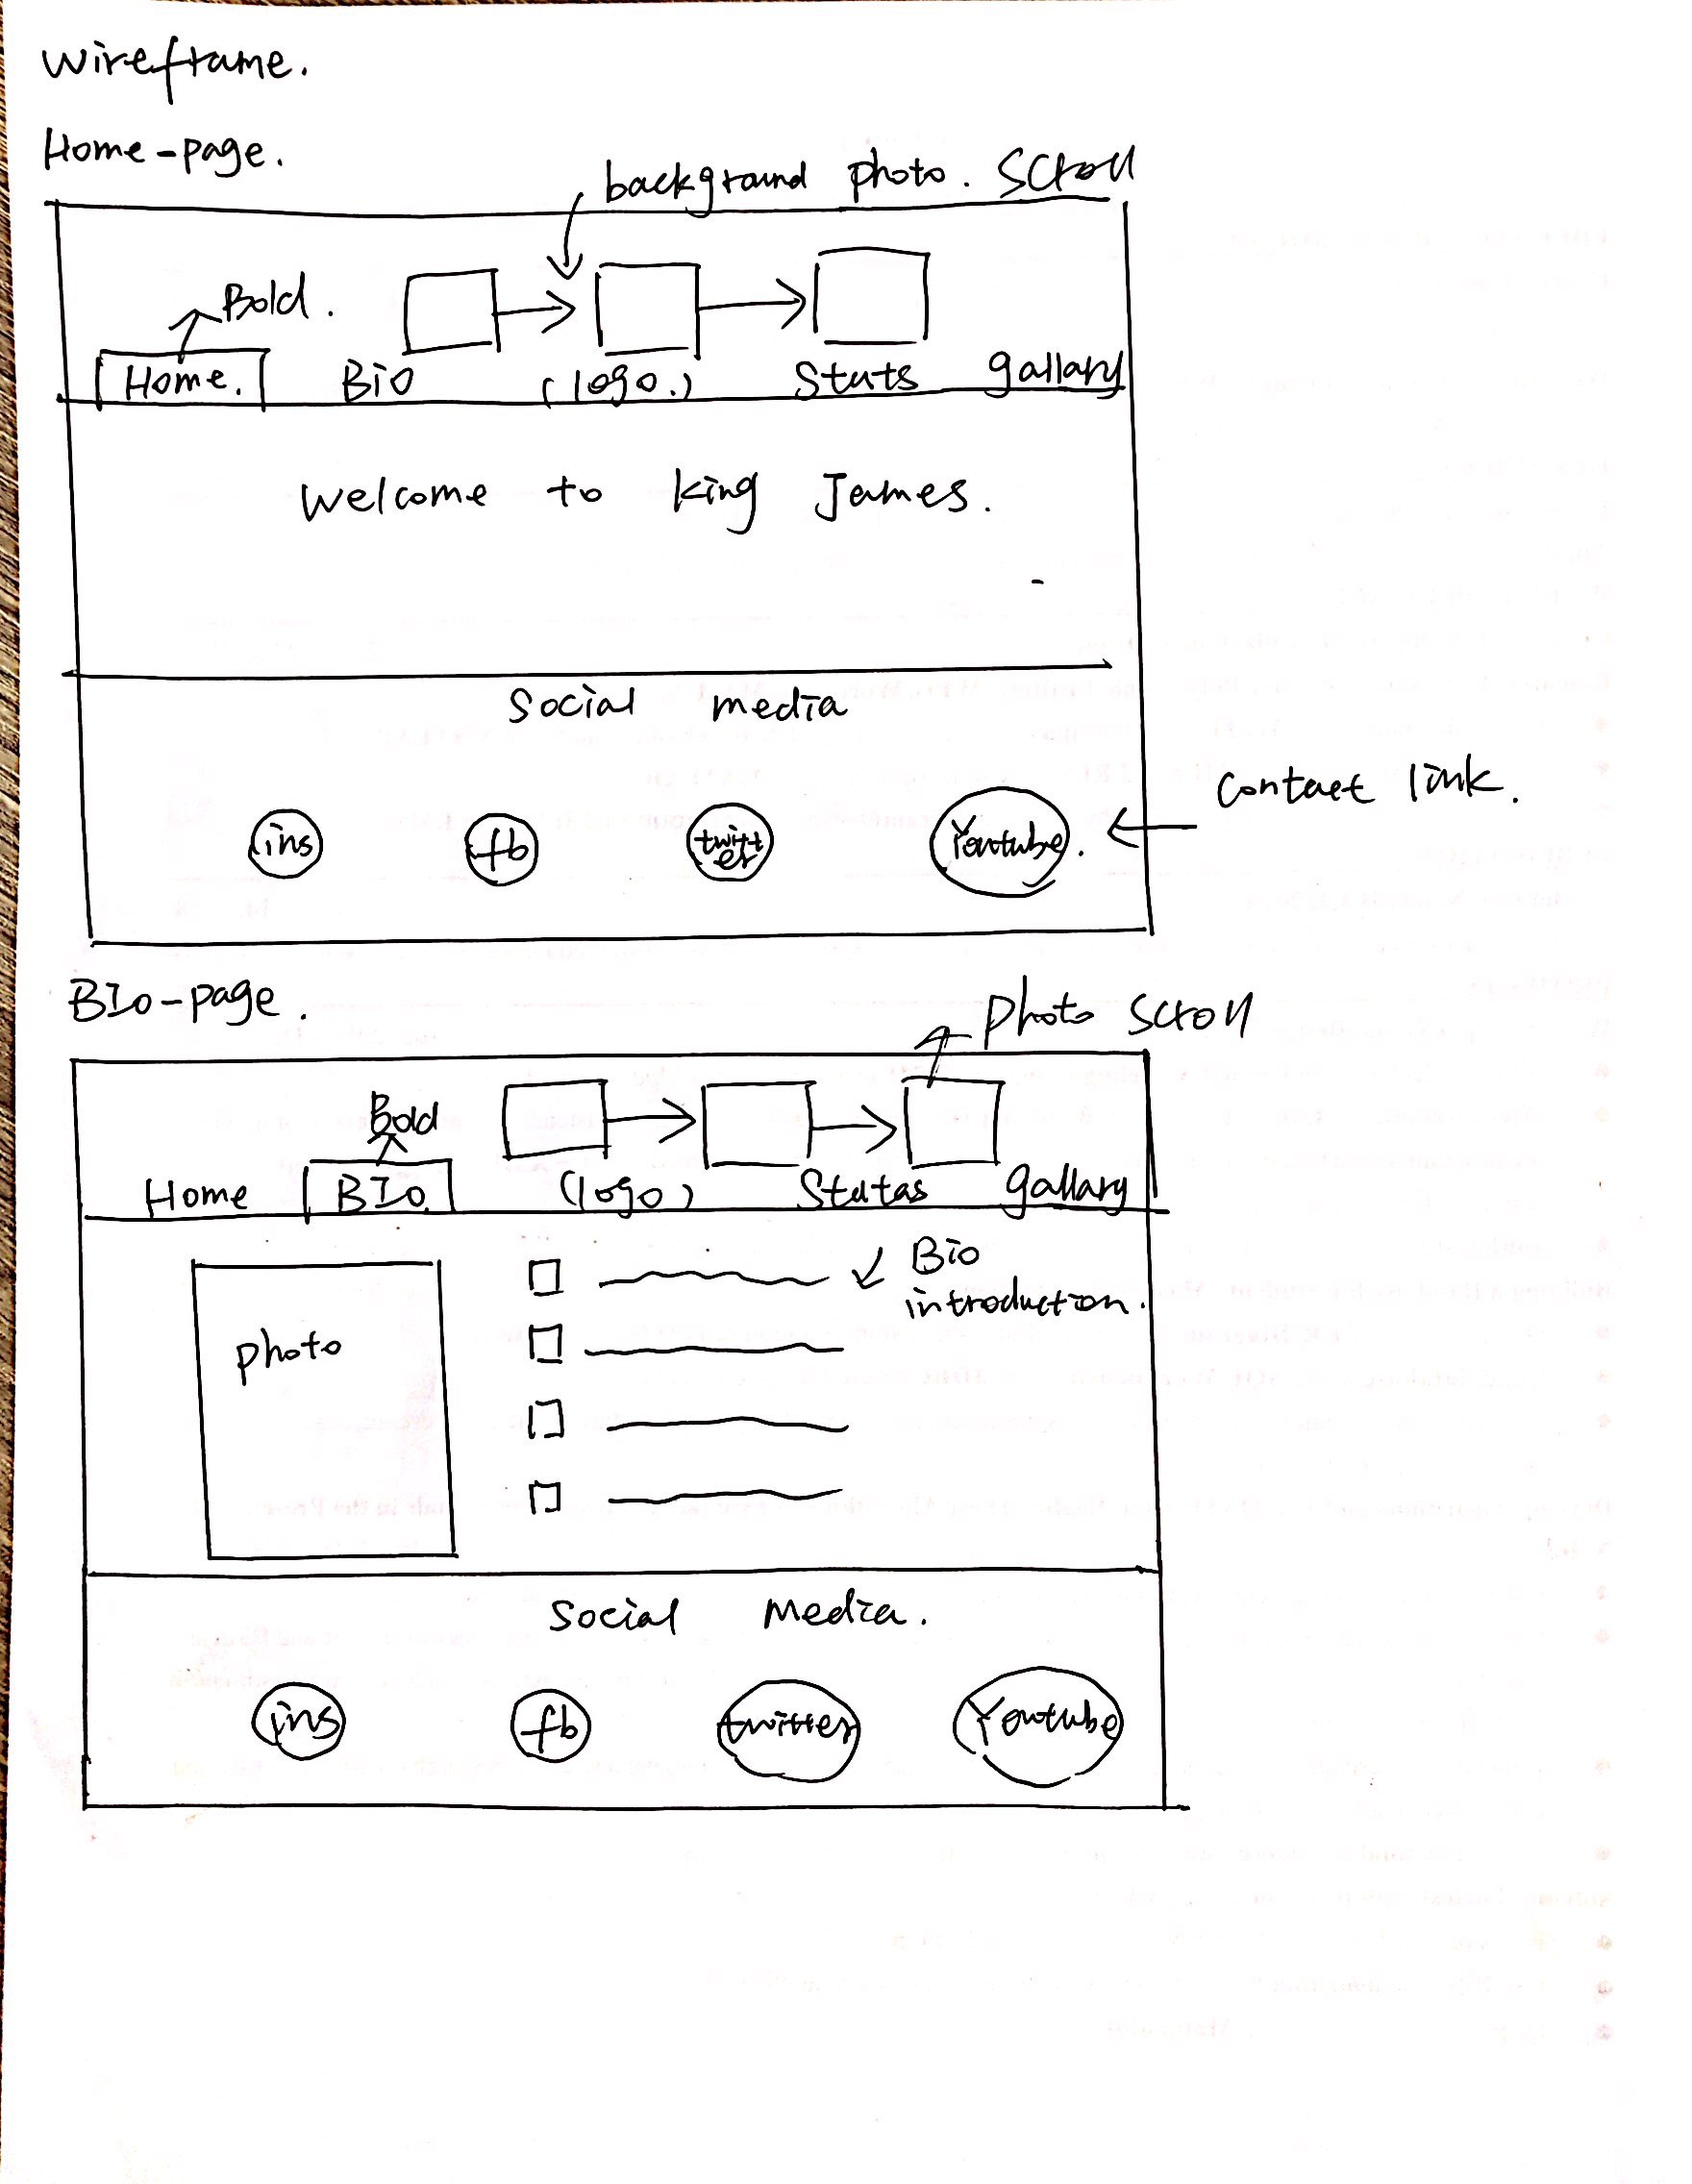 Wireframe.
Home-page.
background photo. Scroll
Bold.
Home. Bio (logo.) Stuts gallary
Welcome to king James.
Social media
Contact link.
ins fb twitter Youtube.
BIo-page.
photo scroll
Bold
Home BIo (logo) Stutas gallary
Bio
introduction.
photo
Social Media.
ins fb twitter Youtube